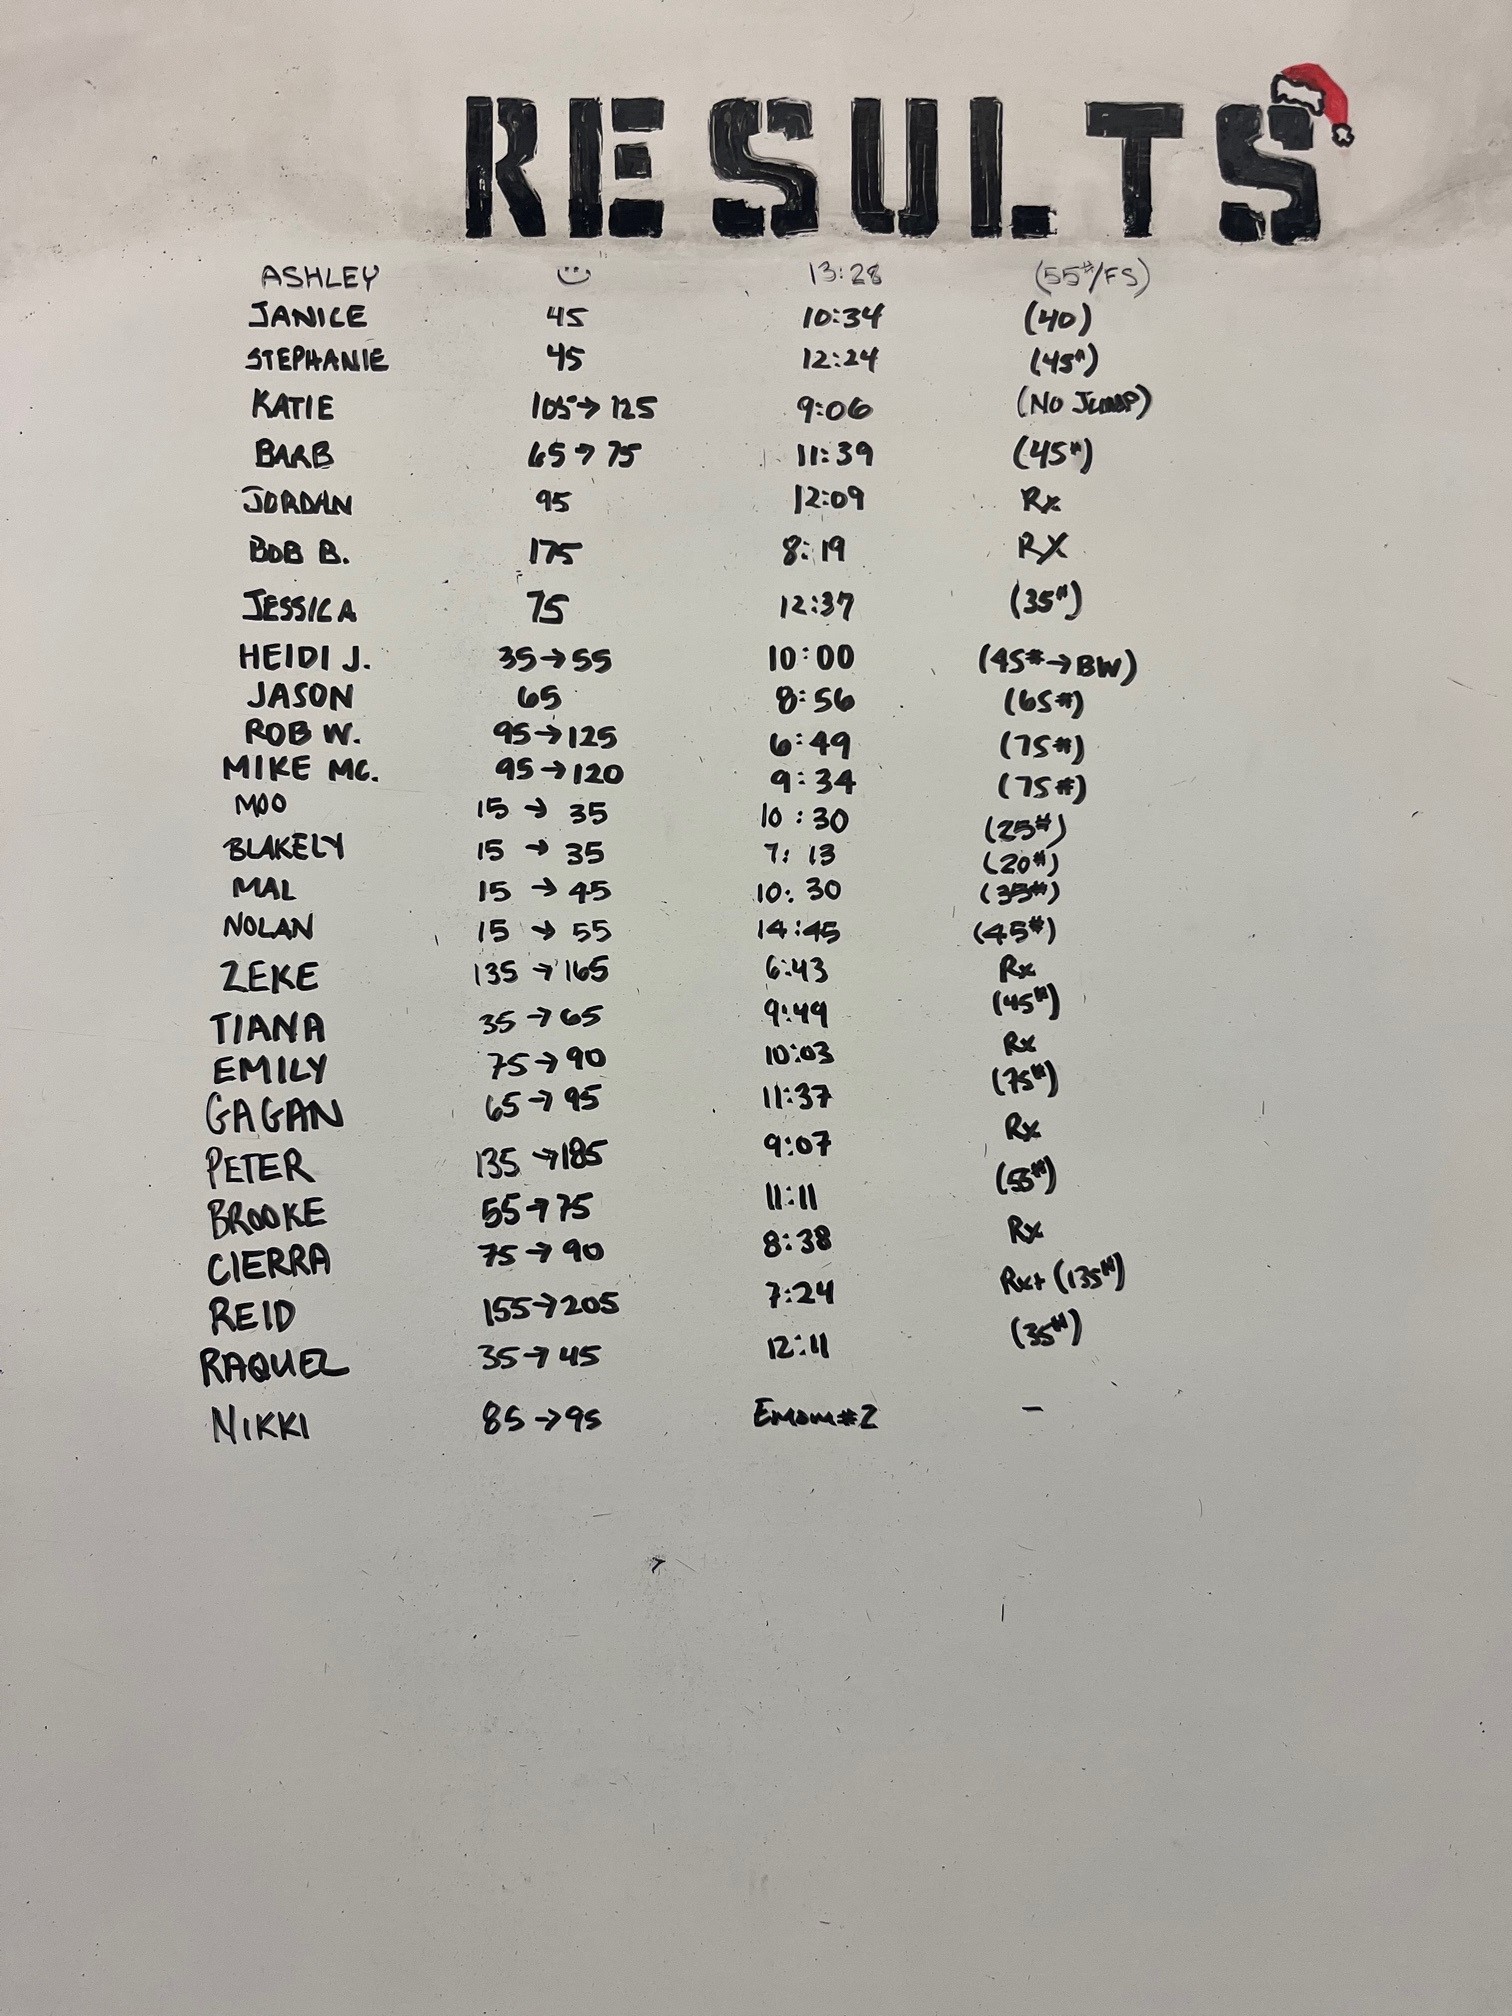 RESULTS
ASHLEY 13:28 (55#/FS)
JANICE 45 10:34 (40)
STEPHANIE 45 12:24 (45#)
KATIE 105→125 9:06 (NO JUMP)
BARB 65→75 11:39 (45#)
JORDAN 95 12:09 Rx
BOB B. 175 8:19 RX
JESSICA 75 12:37 (35#)
HEIDI J. 35→55 10:00 (45#→BW)
JASON 65 8:56 (65#)
ROB W. 95→125 6:49 (75#)
MIKE MC. 95→120 9:34 (75#)
MOO 15→35 10:30 (25#)
BLAKELY 15→35 7:13 (20#)
MAL 15→45 10:30 (35#)
NOLAN 15→55 14:45 (45#)
ZEKE 135→165 6:43 Rx
TIANA 35→65 9:49 (45#)
EMILY 75→90 10:03 Rx
GAGAN 65→95 11:37 (75#)
PETER 135→185 9:07 Rx
BROOKE 55→75 11:11 (55#)
CIERRA 75→90 8:38 Rx
REID 155→205 7:24 Rx+ (135#)
RAQUEL 35→45 12:11 (35#)
NIKKI 85→95 Emom#2 -